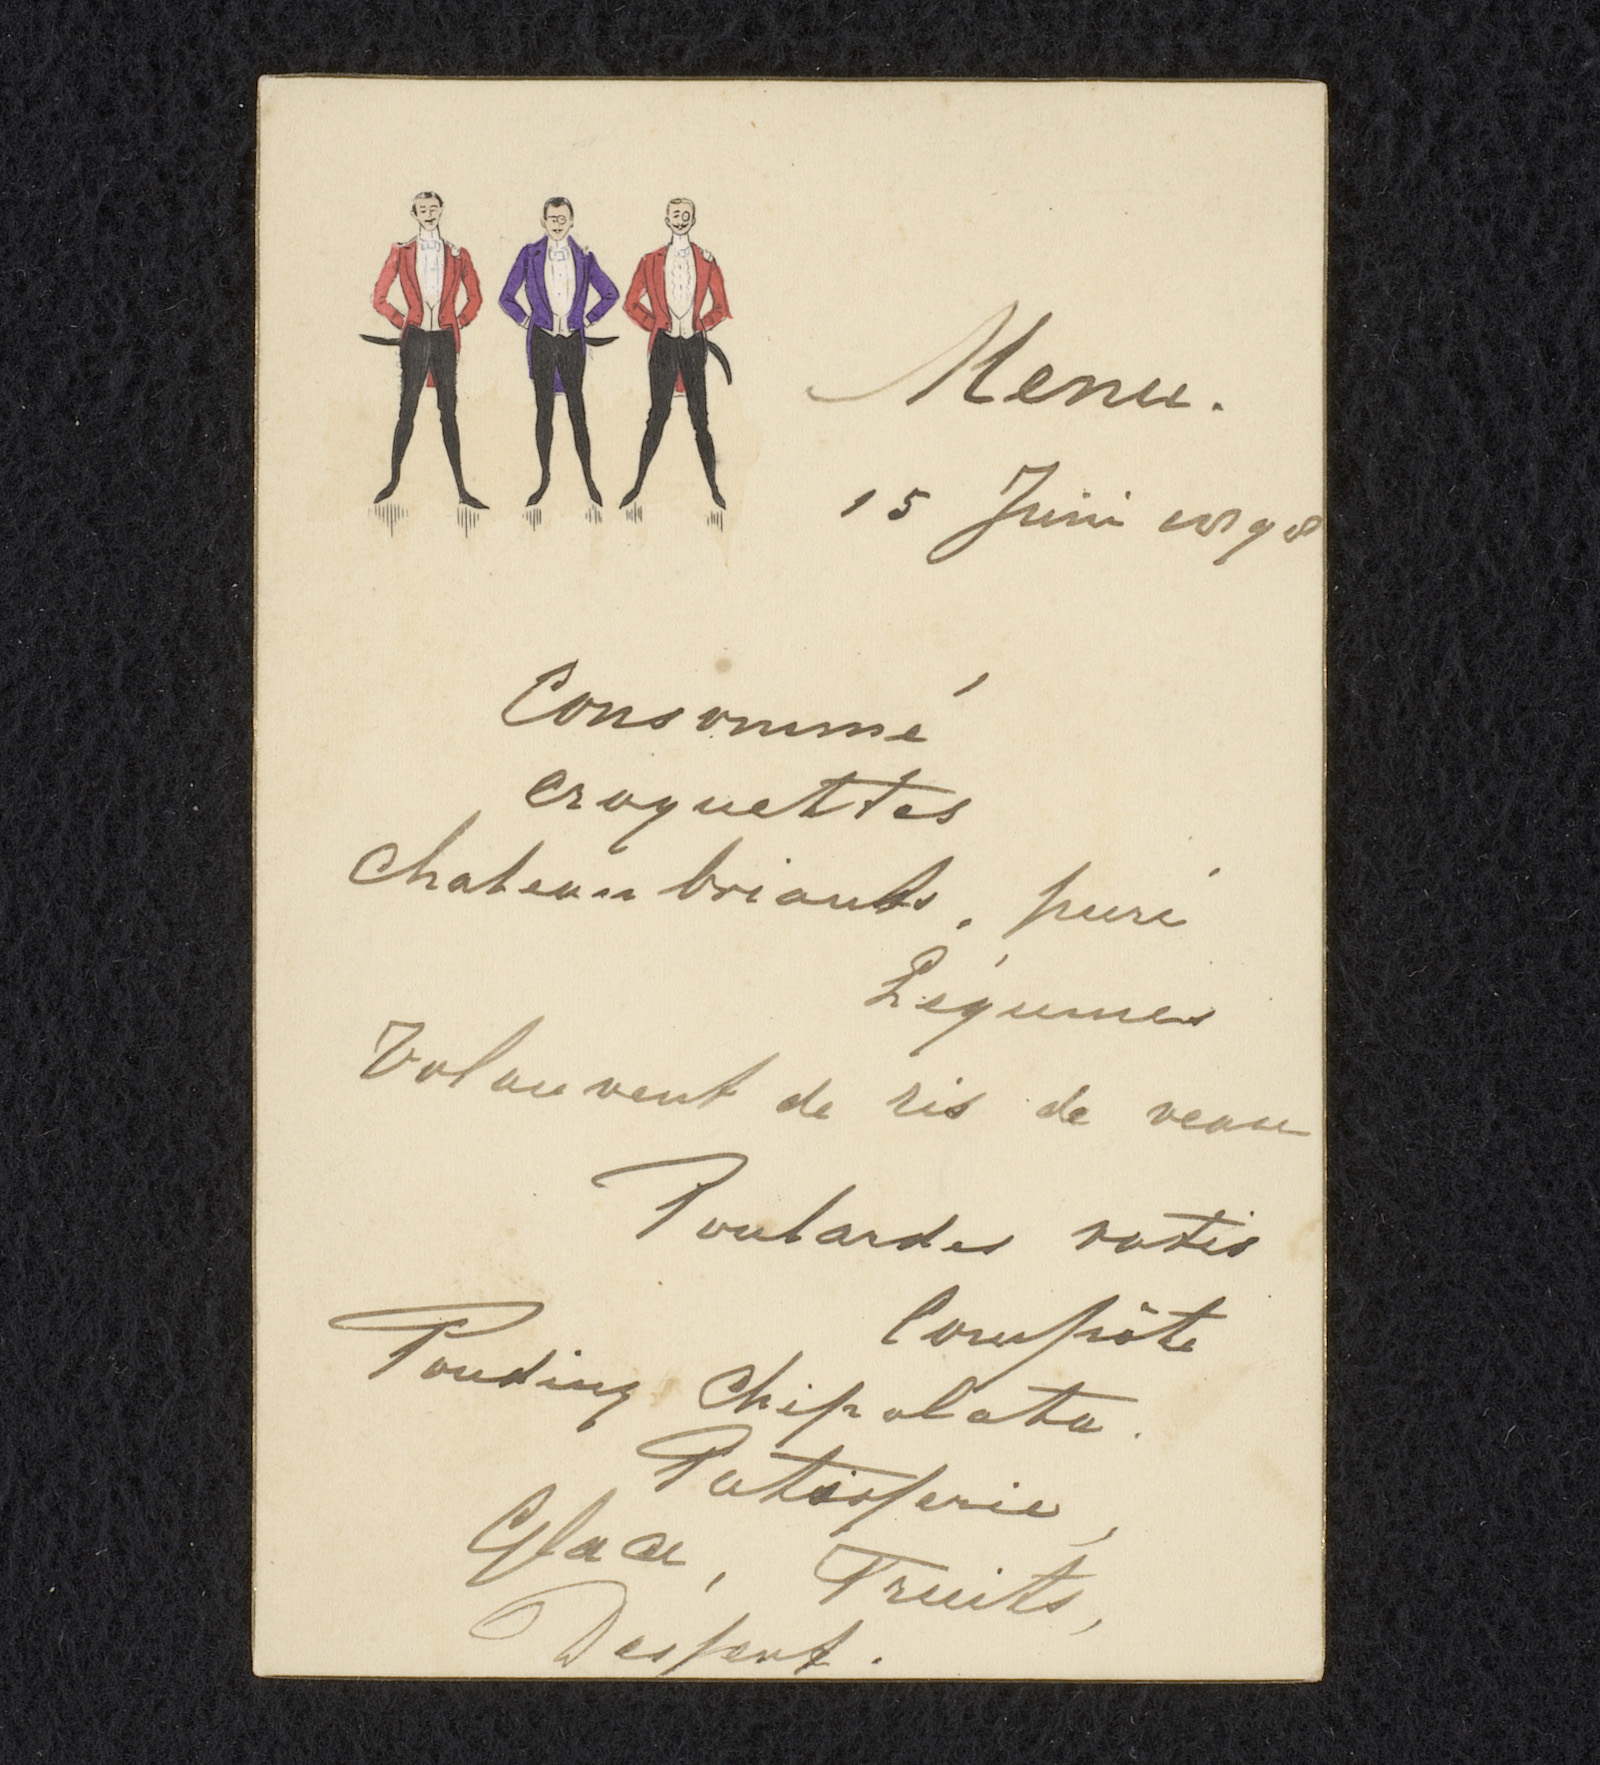 Menu.
15 Juni 1898
Consommé
croquettes
chateaubriants, puré
Légumes
Volauvent de ris de veau
Poulardes rotis
Compôte
Pouding Chipolata.
Patisserie,
Glace, Fruits,
Dessert.